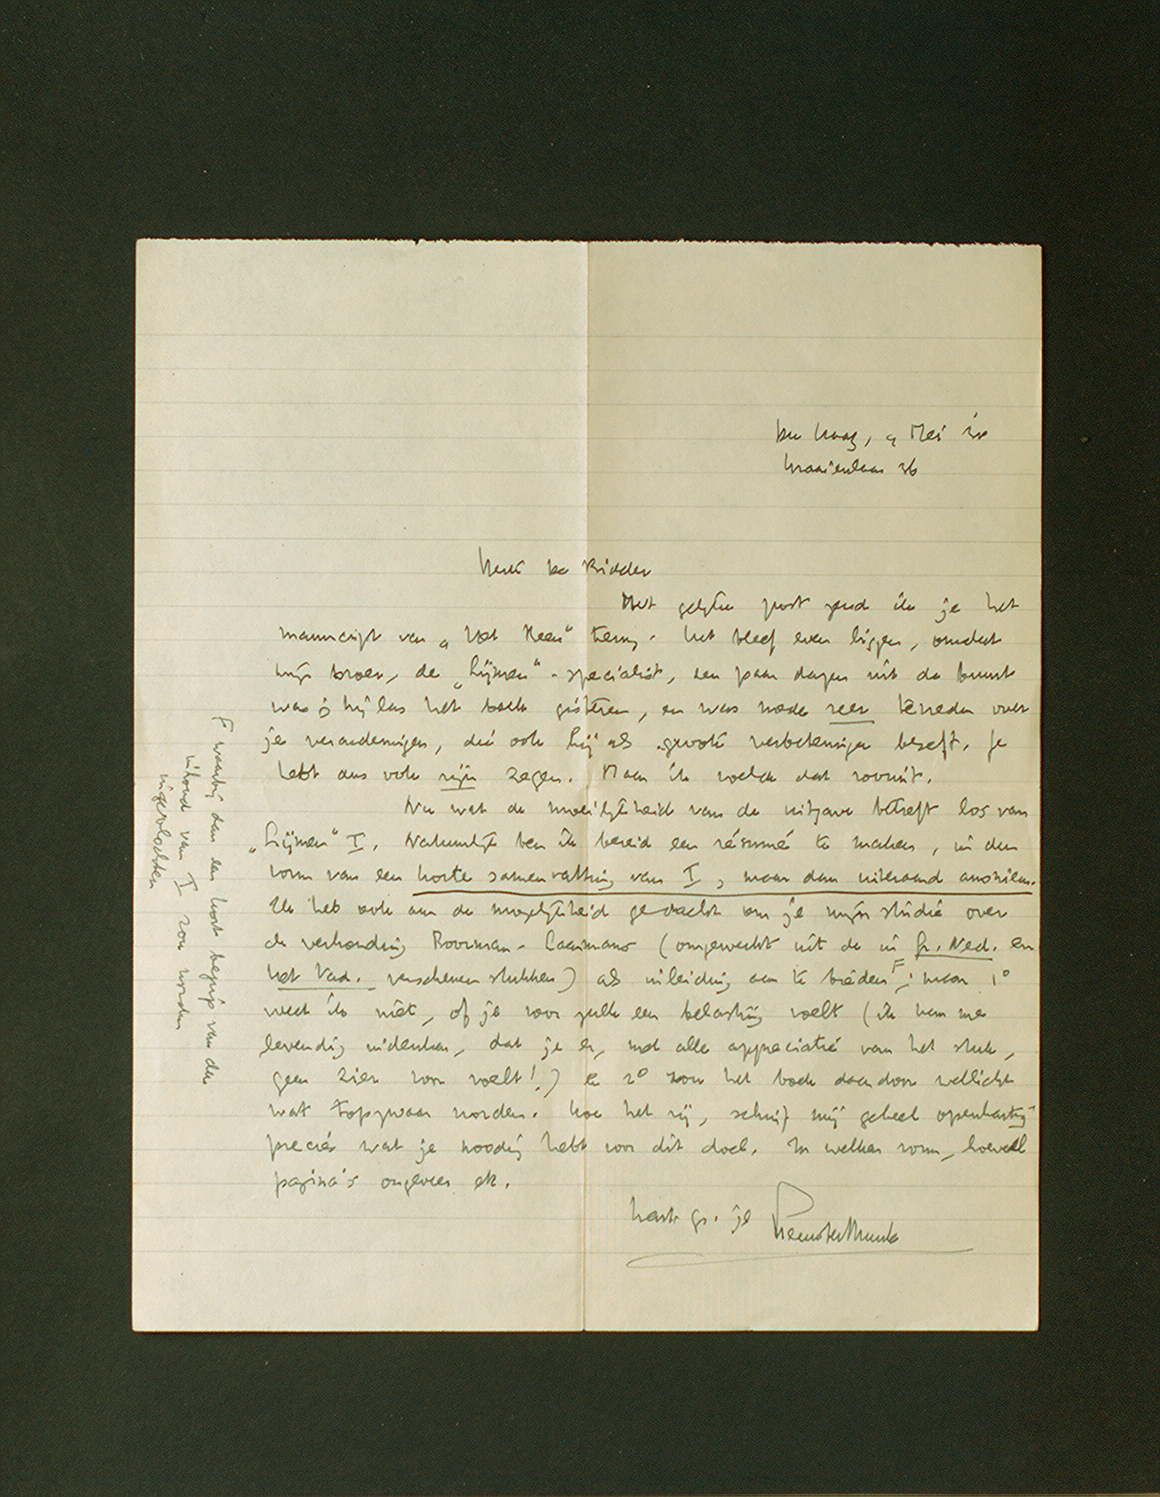 Den Haag, 9 Mei '38
Kraaienlaan 36
Beste De Ridder
Met gelijke post zend ik je het
manuscript van „Het Been" terug. Het bleef even liggen, omdat
mijn broer, de „Lijmen"-specialist, een paar dagen uit de buurt
was; hij las het boek gisteren, en was mede zeer tevreden over
je veranderingen, die ook hij als groote verbeteringen beseft. Je
hebt ons volle zegen. Maar ik voelde dat vooruit.
Nu wat de moeilijkheid van de uitgave betreft los van
„Lijmen" I. Natuurlijk ben ik bereid een résumé te maken, in den
vorm van een korte samenvatting van I, maar dan uiteraard anoniem.
Ik heb ook aan de mogelijkheid gedacht om je mijn studie over
de verhouding Boorman-Laarmans (omgewerkt uit de in Gr. Ned. en
Het Vad. verschenen stukken) als inleiding aan te bieden F; maar 1°
weet ik niet, of je voor zulk een belasting voelt (ik kan me
levendig indenken, dat je er, met alle appreciatie van het stuk,
geen zier voor voelt!) en 2° zou het boek daardoor wellicht
wat topzwaar worden. Hoe het zij, schrijf mij geheel openhartig
precies wat je noodig hebt voor dit doel. In welken vorm, hoeveel
pagina's ongeveer etc.
Hart. gr. je
F waarbij dan een kort begrip van den
inhoud van I zou worden
ingevlochten